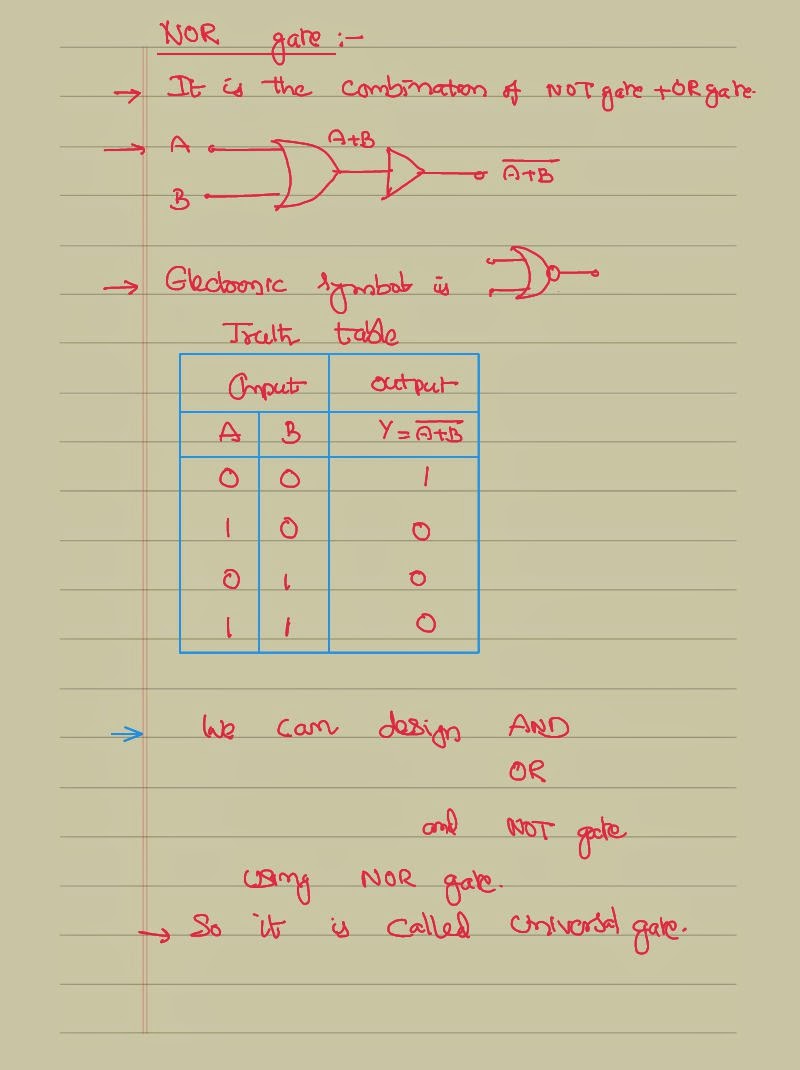 NOR gate :-
→ It is the combination of NOT gate + OR gate.
→ A A+B
B A̅+̅B̅
→ Electronic symbol is
Truth table
Input output
A B Y = A̅+̅B̅
0 0 1
1 0 0
0 1 0
1 1 0
→ We can design AND
OR
and NOT gate
using NOR gate.
→ So it is called Universal gate.